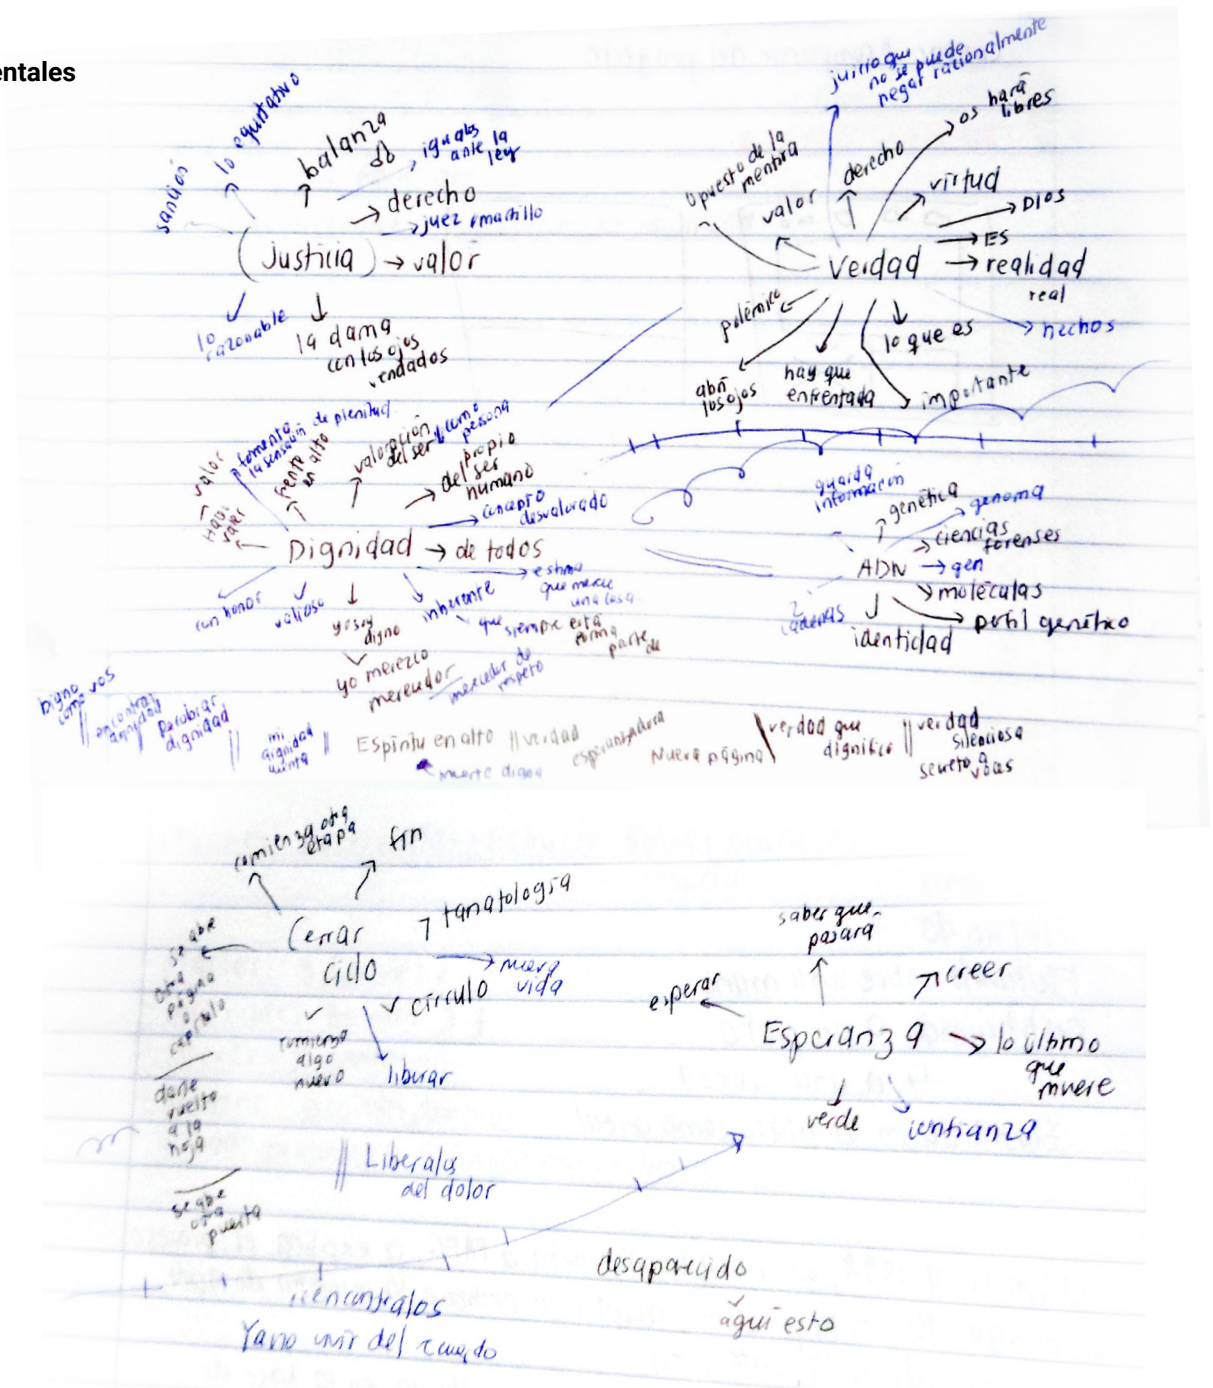 entales
sanción
lo equitativo
balanza
iguales
ante la
ley
derecho
juez martillo
(Justicia) → valor
lo
razonable
la dama
con los ojos
vendados
juicio que
no se puede
negar racionalmente
os hará
libres
opuesto de la
mentira
valor
derecho
virtud
DIOS
ES
Verdad → realidad
real
hechos
polémica
lo que es
abrí
los ojos
hay que
enfrentarla
importante
valor
valer
fomenta
la sensación de plenitud
frente
en alto
valoración
del ser
como
persona
propio
del ser
humano
concepto
desvalorado
Dignidad → de todos
estima
que merece
una cosa
con honor
valioso
yo soy
digno
inherente
que
siempre está
forma
parte de
yo merezco
merecedor
merecedor de
respeto
guarda
información
genética
genoma
ciencias
forenses
ADN → gen
moléculas
2
cadenas
identidad
perfil genético
Digno
como vos
encontrar
dignidad
Recobrar
dignidad
mi
dignidad
Espíritu en alto
muerte digna
verdad
esperanzadora
Nueva página
verdad que
dignifica
verdad
silenciosa
secreto a
voces
comienza otra
etapa
fin
tanatología
Cerrar
ciclo
nueva
vida
círculo
se abre
otra
página
o
capítulo
comienzo
algo
nuevo
liberar
darle
vuelta
a la
hoja
se abre
otra
puerta
Liberalos
del dolor
saber que
pasará
creer
esperar
Esperanza → lo último
que
muere
verde
confianza
desaparecido
aquí esto
Ya no vivir del